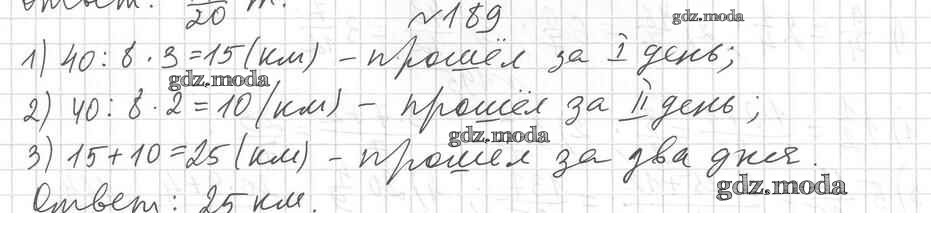 Ответ: 20 т.
№189 gdz.moda
1) 40:8·3=15(км) – прошёл за I день;
gdz.moda
2) 40:8·2=10(км) – прошёл за II день;
gdz.moda
3) 15+10=25(км) – прошёл за два дня.
gdz.moda
Ответ: 25 км.